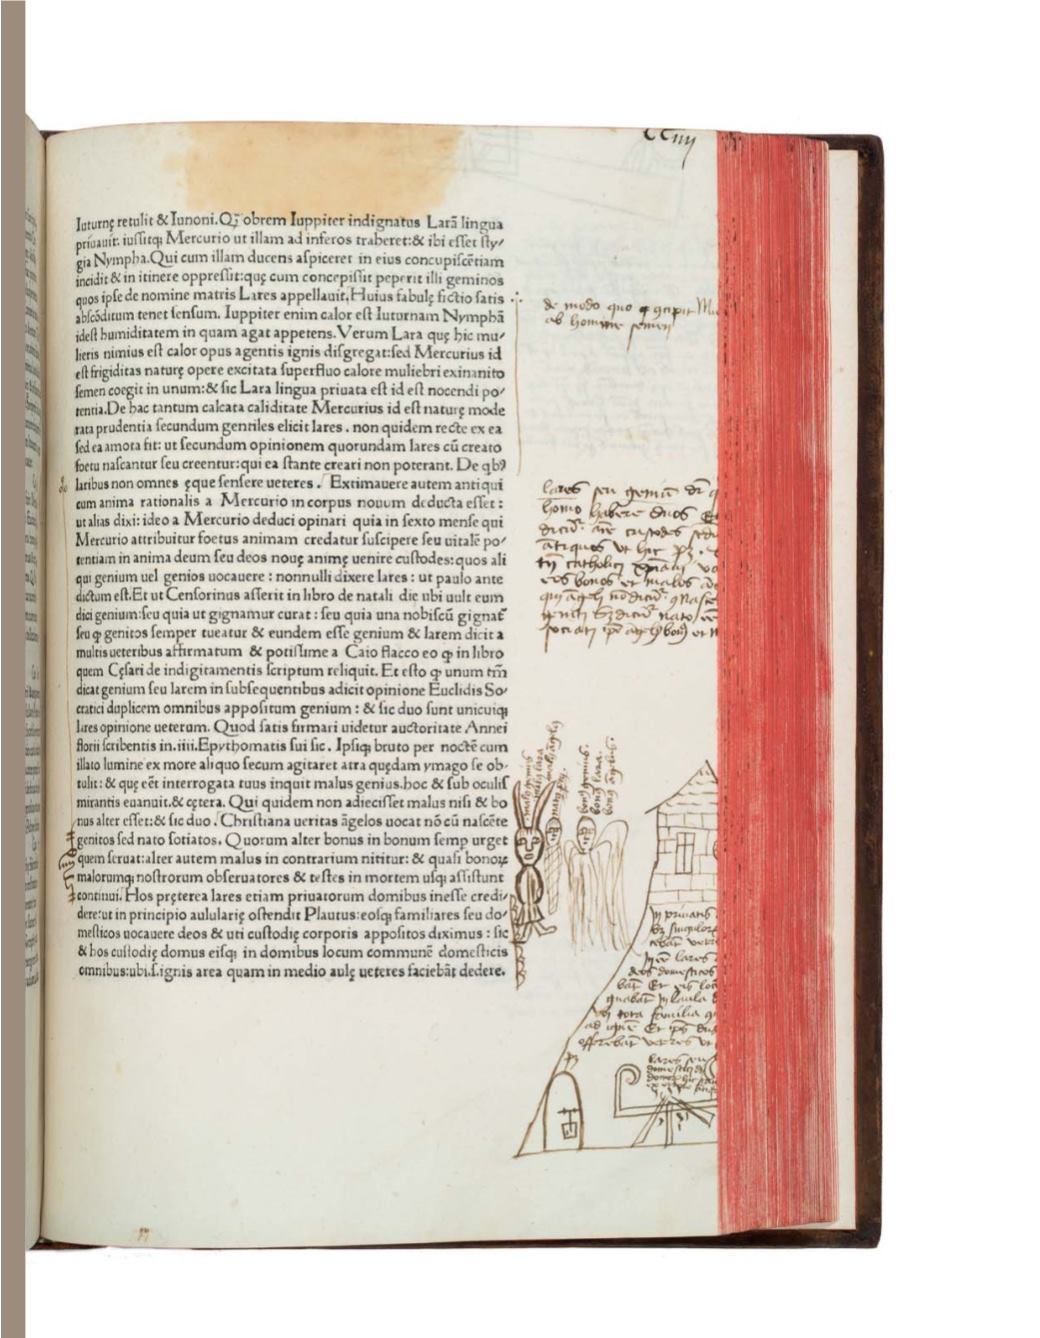 CCiiij
Iuturnę retulit & Iunoni.Qꝫ obrem Iuppiter indignatus Larã lingua
priuauit: iussitqꝫ Mercurio ut illam ad inferos traheret:& ibi esset sty/
gia Nympha.Qui cum illam ducens aspiceret in eius concupiscẽtiam
incidit & in itinere oppressit:quę cum concepissit peperit illi geminos
quos ipse de nomine matris Lares appellauit.Huius fabulę fictio satis
abscõditum tenet sensum. Iuppiter enim calor est Iuturnam Nymphã
idest humiditatem in quam agat appetens. Verum Lara quę hic mu/
lieris nimius est calor opus agentis ignis disgregat:sed Mercurius id
est frigiditas naturę opere excitata superfluo calore muliebri exinanito
semen coegit in unum:& sic Lara lingua priuata est id est nocendi po/
tentia.De hac tantum calcata caliditate Mercurius id est naturę mode
rata prudentia secundum gentiles elicit lares . non quidem recte ex ea
sed ea amota fit: ut secundum opinionem quorundam lares cũ creato
foetu nascantur seu creentur:qui ea stante creari non poterant. De qbꝰ
laribus non omnes ęque sensere ueteres . Extimauere autem antiqui
cum anima rationalis a Mercurio in corpus nouum deducta esset :
ut alias dixi: ideo a Mercurio deduci opinari quia in sexto mense qui
Mercurio attribuitur foetus animam credatur suscipere seu uitalẽ po/
tentiam in anima deum seu deos nouę animę uenire custodes:quos ali
qui genium uel genios uocauere : nonnulli dixere lares : ut paulo ante
dictum est.Et ut Censorinus asserit in libro de natali die ubi uult eum
dici genium:seu quia ut gignamur curat : seu quia una nobiscũ gignat̃
seu ꝙ genitos semper tueatur & eundem esse genium & larem dicit a
multis ueteribus affirmatum & potissime a Caio flacco eo ꝙ in libro
quem Cęsari de indigitamentis scriptum reliquit. Et esto ꝙ unum tm̃
dicat genium seu larem in subsequentibus adicit opinione Euclidis So/
cratici duplicem omnibus appositum genium : & sic duo sunt unicuiqꝫ
lares opinione ueterum. Quod satis firmari uidetur auctoritate Annei
florii scribentis in.iiii.Epythomatis sui sic . Ipsiqꝫ bruto per noctẽ cum
illato lumine ex more aliquo secum agitaret atra quędam ymago se ob/
tulit: & quę eẽt interrogata tuus inquit malus genius.hoc & sub oculis
mirantis euanuit.& cętera. Qui quidem non adiecisset malus nisi & bo
nus alter esset:& sic duo . Christiana ueritas ãgelos uocat nõ cũ nascẽte
genitos sed nato sotiatos. Quorum alter bonus in bonum semp urget
quem seruat:alter autem malus in contrarium nititur: & quasi bonoꝝ
malorumqꝫ nostrorum obseruatores & testes in mortem usqꝫ assistunt
continui. Hos pręterea lares etiam priuatorum domibus inesse credi/
dere:ut in principio aulularię ostendit Plautus:eosqꝫ familiares seu do/
mesticos uocauere deos & uti custodię corporis appositos diximus : sic
& hos custodię domus eisqꝫ in domibus locum communẽ domesticis
omnibus:ubi.s.ignis area quam in medio aulę ueteres faciebãt dedere.
de modo quo
ab homine semen
lares seu
homo habere duos
custodes
antiquos ut hic
catholici
eos bonos et malos
malus genius
mala lara
malus angelus
bonus genius.
bona lara.
bonus angelus.
In priuatis
singulor
lares
deos domesticos
tota familia
ad ignem Et
offerebãt
lares seu
domestici